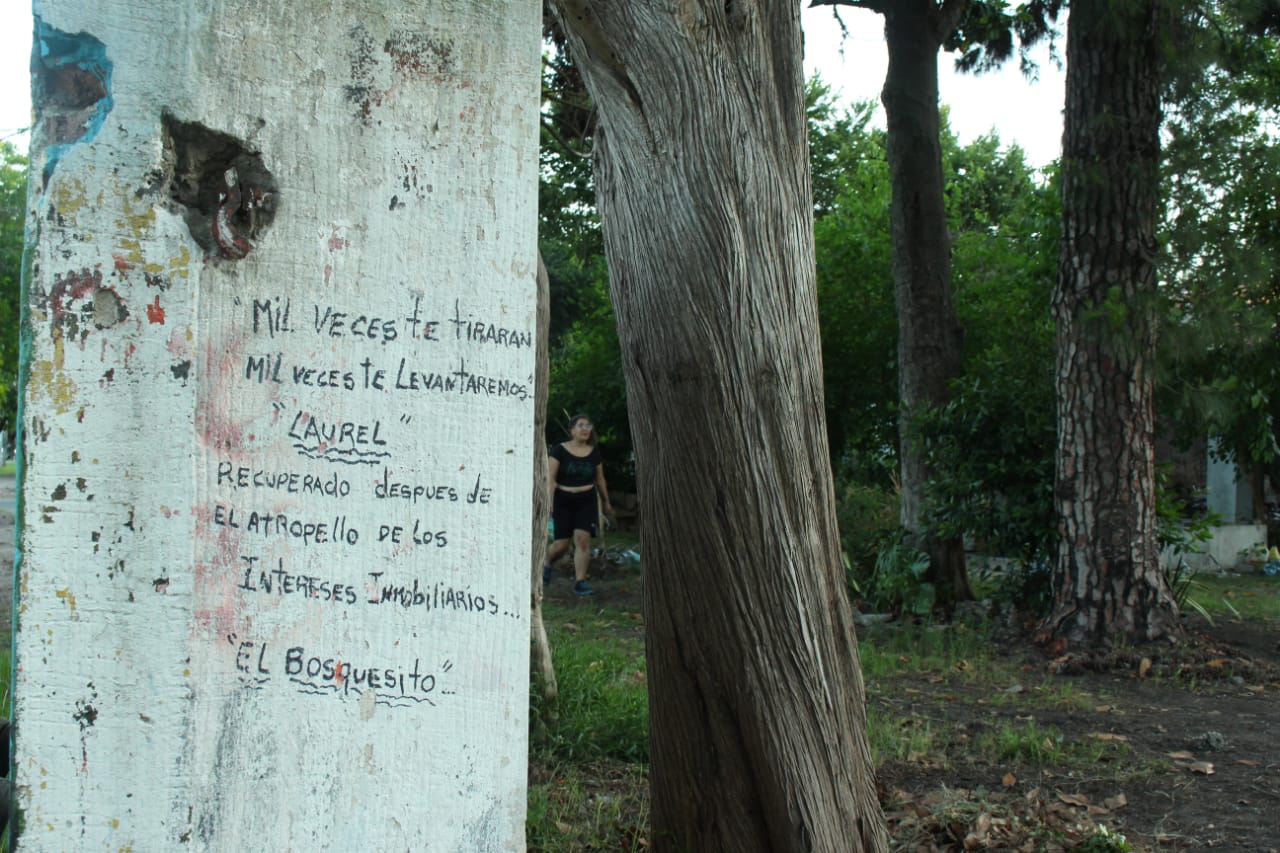 "MIL VECES TE TIRARAN
MIL VECES TE LEVANTAREMOS"..
"LAUREL"
RECUPERADO DESPUES DE
EL ATROPELLO DE LOS
INTERESES INMOBILIARIOS...
"EL BOSQUESITO"...